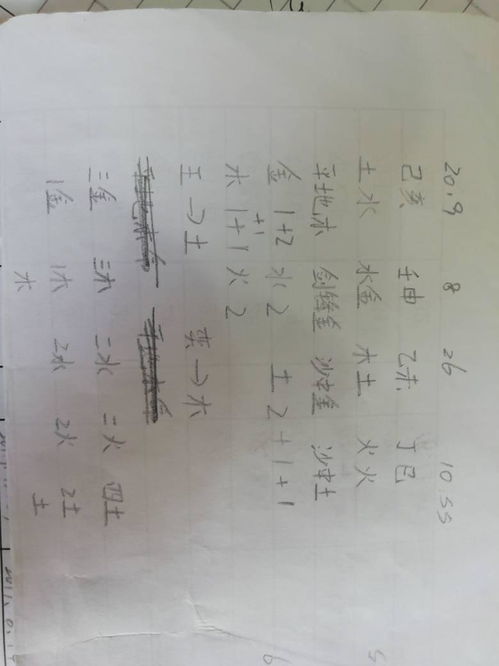 2019 8 26 10:55
己亥 壬申 乙未 丁巳
土水 水金 木土 火火
平地木 剑锋金 沙中金 沙中土
金 1+2 水 2 土 2+1+1
+1
木 1+1 火 2
王→土 奕→木
三金 三木 二水 二火 四土
1金 1木 2水 2火 2土
木 土